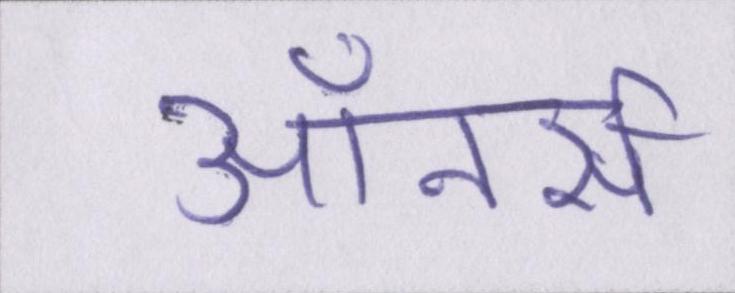 ऑनर्स